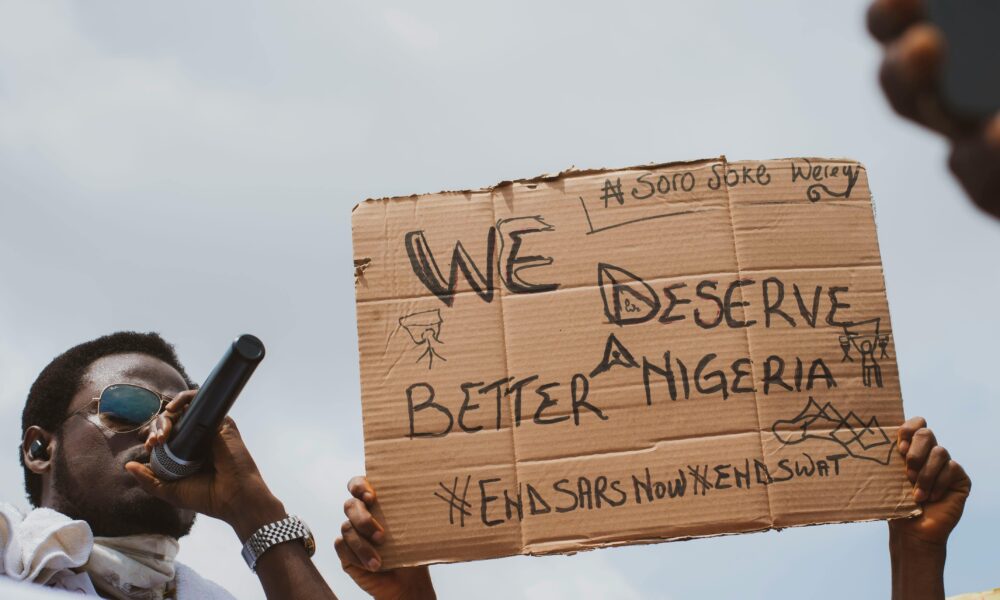 #Soro Soke Werey
WE
DESERVE
BETTER NIGERIA
#ENDSARSNOW #ENDSWAT